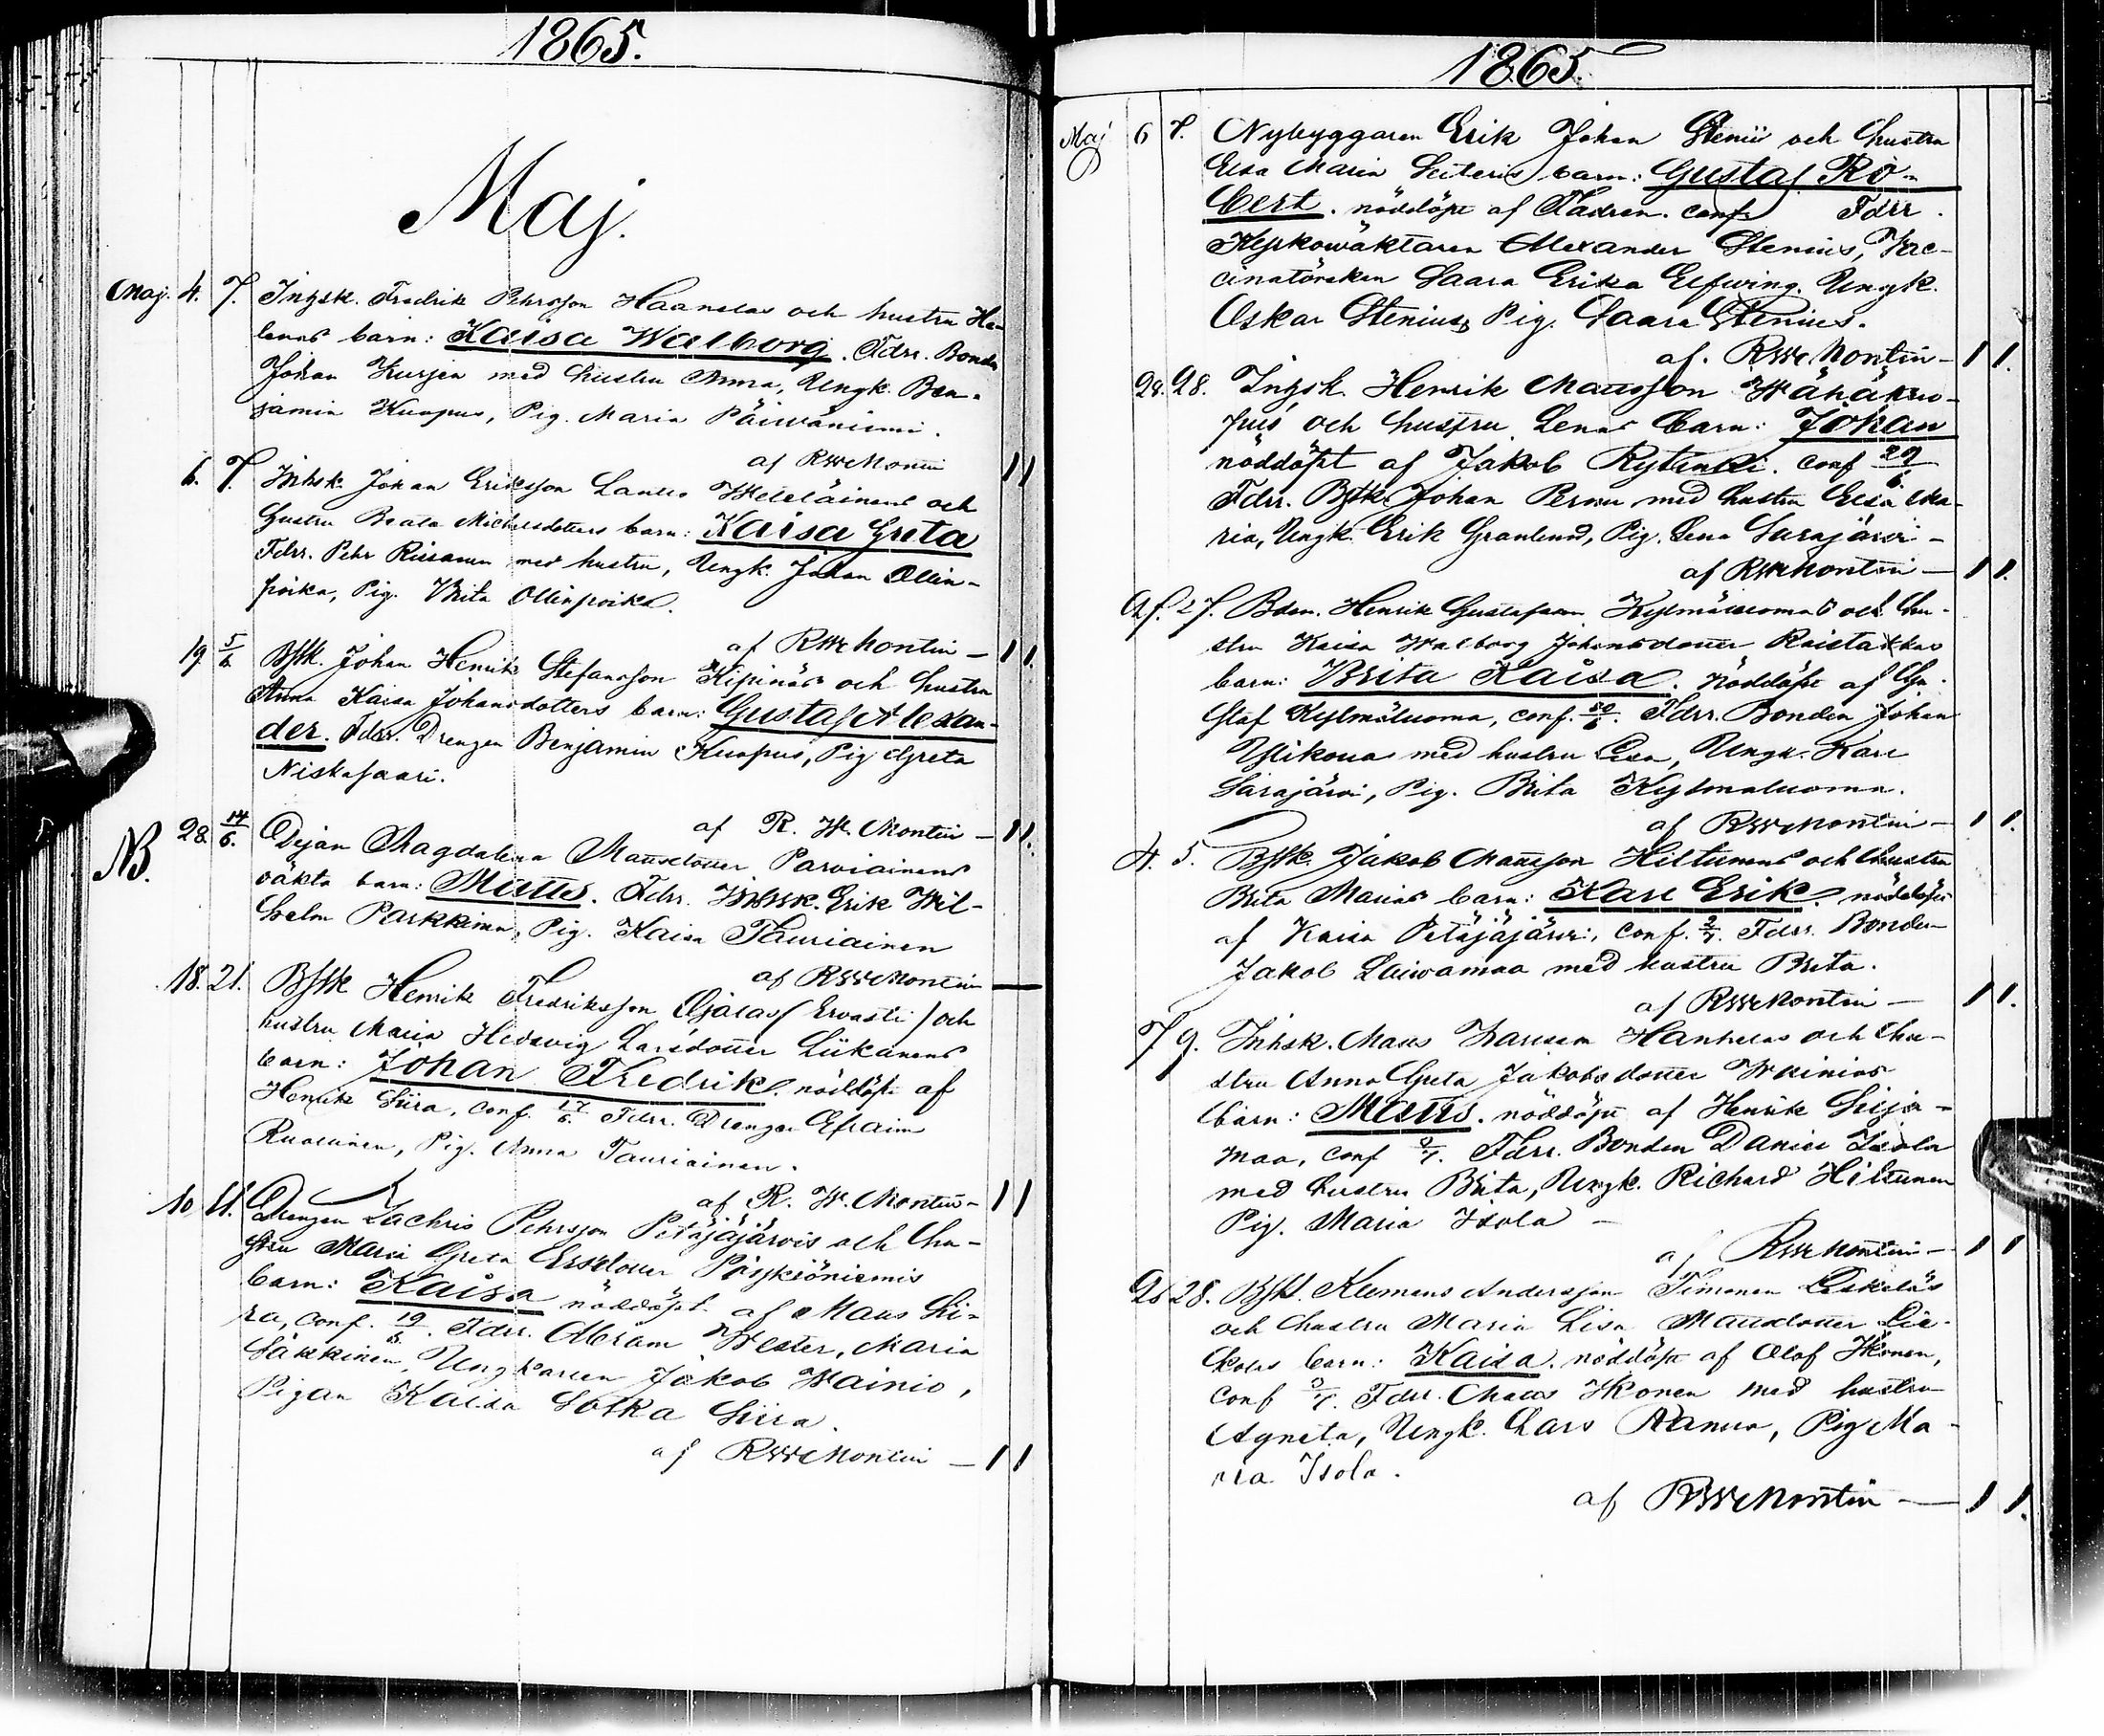 1865.
Maj.
Maj. 4. 7. Inhsk. Fredrik Pehrsson Haanelas och hustru He-
lenas barn: Kaisa Walborg. Fdrr. Bonden
Johan Kurjen med hustru Anna, Ungk. Ben-
jamin Kuopus, Pig. Maria Päiwäniemi.
af RWMontin
6. 7. Inhsk. Johan Eriksson och
hustru Beata Michelsdotters barn: Kaisa Greta
Fdrr. Pehr Riesanen med hustru, Ungk. Johan Ollin-
poika, Pig. Brita Ollinpoika.
af RWMontin —
19 5/6 Bfsk. Johan Henrik Stefansson Kipinäs och hustru
Anna Kaisa Johansdotters barn: Gustaf Alexan-
der. Fdrr. Drengen Benjamin Kuopus, Pig Greta
Niskasaari.
af R. W. Montin —
NB. 28. 14/6. Dejan Magdalena Mattsdotter Parviainens
oäkta barn: Matts. Fdrr. Inhsk. Erik Wil-
helm Parkkinen, Pig. Kaisa Tauriainen
af RWMontin
18. 21. Bfsk Henrik Fredriksson Ojalas (Ervasti) och
hustru Maria Hedevig Larsdotter Liikanens
barn: Johan Fredrik. nöddöpt af
Henrik Siira, conf. 17/6. Fdrr. Drengen Efraim
Ruolinen, Pig. Anna Tauriainen.
af R. W. Montin —
10 11. Drengen Zachris Pehrsson Petäjäjärvis och hu-
stru Maria Greta Ersdotter Pöyliöniemis
barn: Kaisa nöddöpt af Matts Sii-
ra, conf. 19/6. Fdrr. Abram Wester, Maria
Säkkinen, Ungkarlen Jakob Wainio,
Pigan Kaisa Sotka Siira.
af RWMontin —
1865.
Maj 6 7. Nybyggaren Erik Johan Stenii och hustru
Elsa Maria barn: Gustaf Ro-
bert. nöddöpt af Fadren. conf. Fdrr.
Kyrkowäktaren Alexander Stenius, Vac-
cinatörskan Saara Erika Elfving. Ungk.
Oskar Stenius, Pig. Saara Stenius.
af. RWMontin —
28. Inhsk. Henrik Mattsson Wähäkuo-
pus och hustru Lenas barn: Johan
nöddöpt af Jakob Rytinki. conf 29/6
Fdrr. Bfsk. Johan Pernu med hustru Elsa Ma-
ria, Ungk. Erik Granlund, Pig. Lena Sarajärvi —
af RWMontin —
27. Bdn. Henrik Gustafsson Kylmäluomas och hu-
stru Kaisa Walborg Johansdotter Raistakkas
barn: Brita Kaisa. nöddöpt af Gu-
staf Kylmäluoma, conf. 30/6. Fdrr. Bonden Johan
Ylikoua med hustru Lisa, Ungk. Karl
Sarajärvi, Pig. Brita Kylmaluoma.
af RWMontin —
4. 5. Bfsk. Jakob Mattsson Hiltunens och hustru
Brita Marias barn: Karl Erik. nöddöpt
af Kaisa Petäjäjärvi, conf. 2/7. Fdrr. Bonden
Jakob Laiwamaa med hustru Brita.
af RWMontin —
7 9. Inhsk. Matts Hanhelas och hu-
stru Anna Greta Jakobsdotter Wainios
barn: Matts. nöddöpt af Henrik Leija-
maa, conf 2/7. Fdrr. Bonden Daniel Isola
med hustru Brita, Ungk. Richard Hiltunen
Pig. Maria Isola —
af RWMontin —
26 28. Bfsk. Klemens Andersson Timonen
och hustru Maria Lisa Mattsdotter Lie-
barn: Kaisa. nöddöpt af Olof Ikonen,
conf 3/7. Fdrr. Matts Ikonen med hustru
Agneta, Ungk. Lars Rannua, Pig Ma-
ria Isola.
af RWMontin —